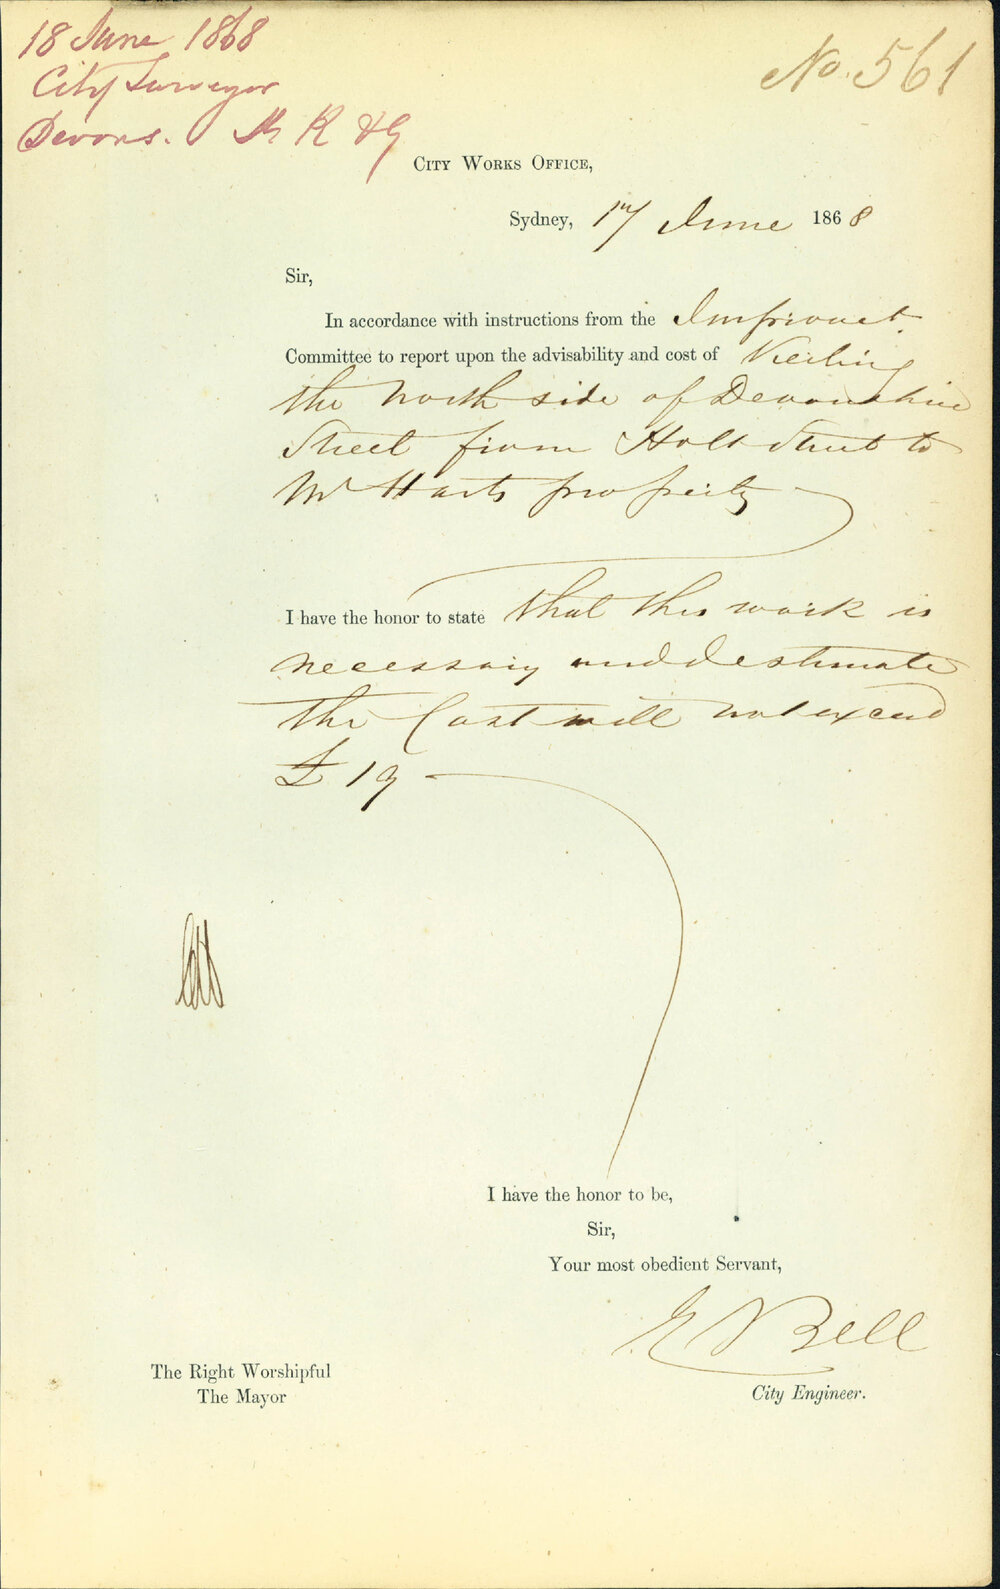 18 June 1868
City Surveyor
Devons. St K & G
No. 561
CITY WORKS OFFICE,
Sydney, 17th June 1868
Sir,
In accordance with instructions from the Improvmet.
Committee to report upon the advisability and cost of Kerbing
the North side of Devonshire
Street from Holt Street to
Mr Harts property
I have the honor to state that this work is
necessary and I estimate
the Cost will not exceed
£ 19
I have the honor to be,
Sir,
Your most obedient Servant,
E Bell
The Right Worshipful
The Mayor
City Engineer.